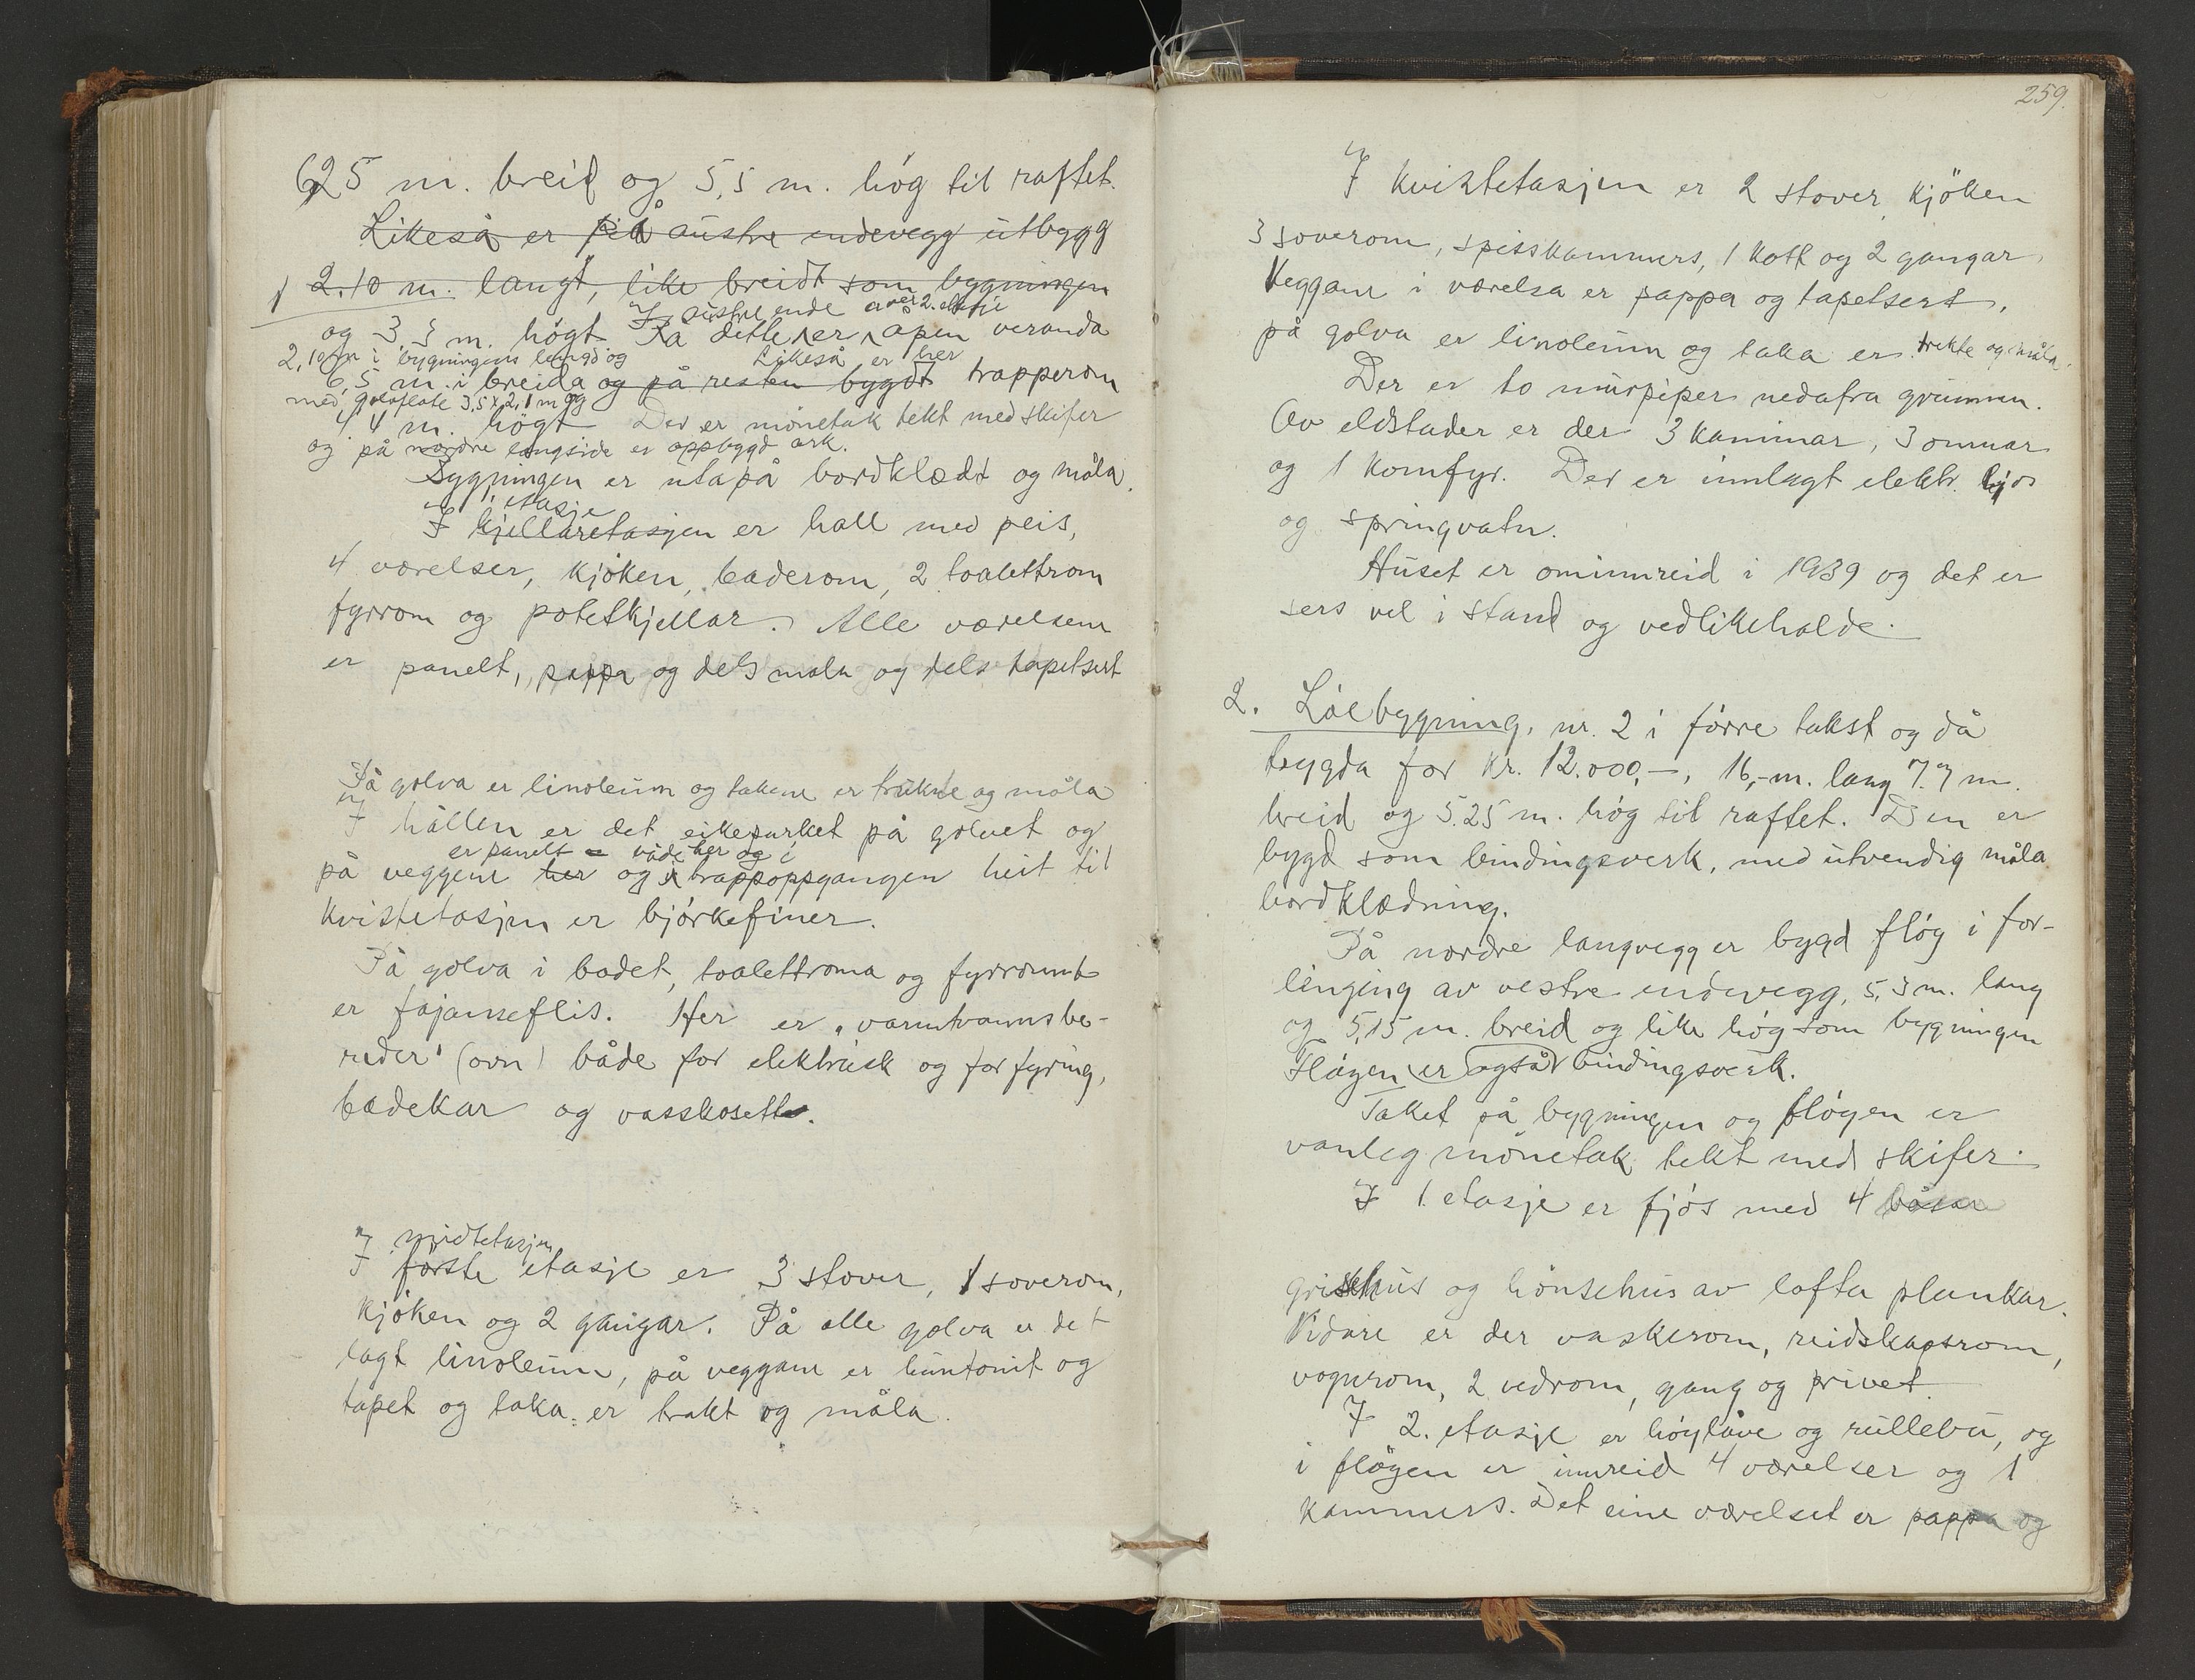 6,25 m. breid og 5,5 m. høg til raftet.
Likeså er på austre endevegg utbygg
2.10 m. langt, like breidt som bygningen
I austre ende over 2. etasje
og 3,5 m. høgt På dette er åpen veranda
2,10 m i bygningens lengd og Likeså er her
6,5 m. i breida og på resten bygdt trapperom
med golvflate 3,5 x 2,1 m og
4 m. høgt Der er mønetak tekt med skifer
og på nordre langside er oppbygd ark.
Bygningen er utapå bordklædt og måla.
1 etasje
I kjellaretasjen er hall med peis,
4 værelser, kjøken, baderom, 2 toalettrom
fyrrom og potetkjellar. Alle værelsene
er panelt, pappa og dels mala og dels tapetsert
På golva er linoleum og takene er trukne og måla
I hallen er det eikeparket på golvet og
er panelt både her og i
på veggene her og i trappoppgangen heit til
kvistetasjen er bjørkefiner.
På golva i badet, toalettroma og fyrrommet
er fajanseflis. Her er „varmtvannsbe-
reder" (ovn) både for elektrisk og for fyring,
badekar og vassklosett.
I midtetasjen
I første etasje er 3 stover, 1 soverom,
kjøken og 2 gangar. På alle golva er det
lagt linoleum, på veggane er huntonit og
tapet og taka er trakt og måla.
259.
I kvistetasjen er 2 stover, kjøken
3 soverom, spisskammers, 1 kott og 2 gangar.
Veggane i værelsa er pappa og tapetsert,
på golva er linoleum og taka er trekte og måla.
Der er to murpiper nedafra grunnen.
Av eldstader er der 3 kaminar, 3 omnar
og 1 komfyr. Der er innlagt elektr. ljos
og springvatn.
Huset er ominnreid i 1939 og det er
sers vel i stand og vedlikehalde.
2. Löebygning, nr. 2 i førre takst og då
trygda for kr. 12.000,-, 16,- m. lang 7.7 m.
breid og 5.25 m. høg til raftet. Den er
bygd som bindingsverk, med utvendig måla
bordklædning.
På nordre langvegg er bygd fløy i for-
lenging av vestre endevegg, 5,3 m. lang
og 5,15 m. breid og like høg som bygningen
Fløyen er også bindingsverk.
Taket på bygningen og fløyen er
vanleg mønetak tekt med skifer.
I 1. etasje er fjøs med 4 båsar
grisehus og hønsehus av lofta plankar.
Vidare er der vaskerom, reidskapsrom,
vognrom, 2 vedrom, gang og privet.
I 2. etasje er høylåve og rullebu, og
i fløyen er innreid 4 værelser og 1
kammers. Det eine værelset er pappa og